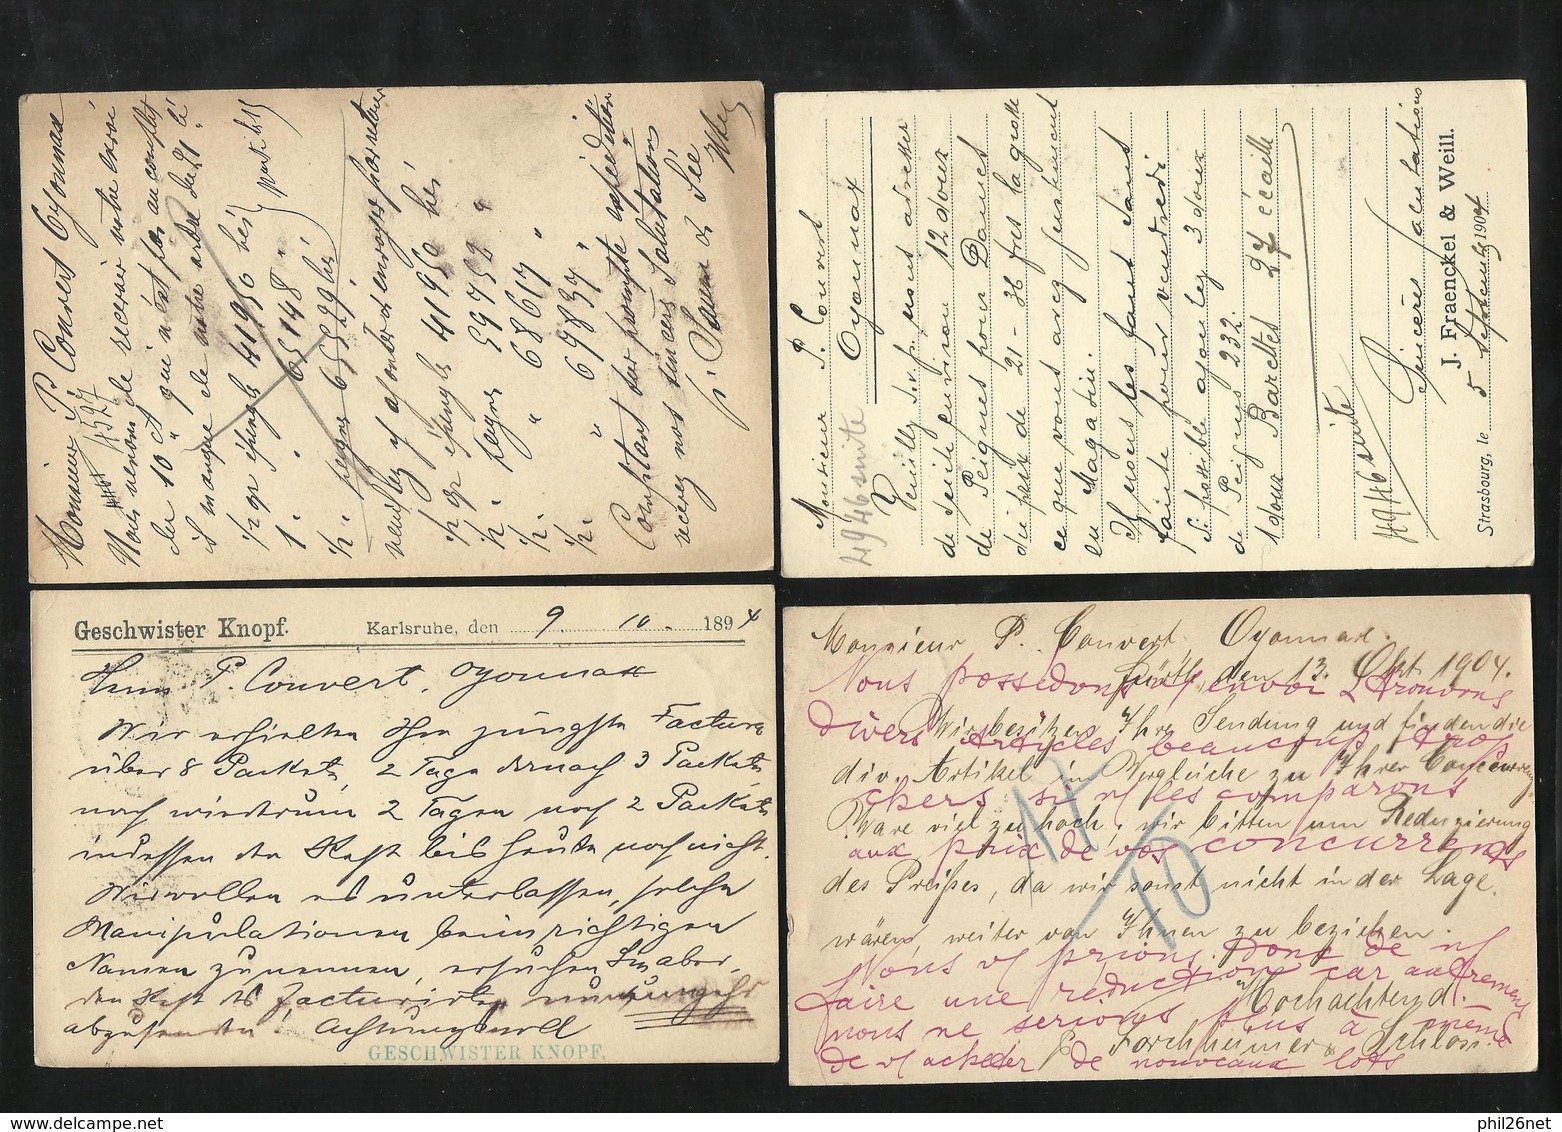 Monsieur P. Convert Oyonnax
4527
Nous venons de recevoir votre envoi
du 10 ct qui n'est pas au complet
il manque de votre ordre du 21
1/2 gr épingle 41950
1. " 65148 "
1/2. peigne 65829
veuillez y ajouter et envoyer par retour
1/2 gr épingle 41950
1/2. peigne 59759 "
1/2. " 68617 "
1/2. " 69839 "
Comptant sur prompte expédition
recevez nos sincères Salutations
Monsieur P. Convert
Oyonnax
4946 suite
Veuillez s.v.p. nous adresser
de suite environ 12 douz
de Peignes pour Dames
du prix de 21 - 36 frcs la grosse
ce que vous avez justement
en Magasin.
Il nous les faut sans
faute pour vendredi
Si possible ajoutez 3 douz
de Peignes 232.
1 douz Barettes 27 écaille
4946 suite
Sincères salutations
J. Fraenckel & Weill.
Strasbourg, le 5 septembre 1904
Geschwister Knopf. Karlsruhe, den 9 10. 1894
Herrn P. Convert, Oyonnax
Wir erhielten Ihre jüngste Factura
über 8 Packete, 2 Tage darnach 3 Packete,
noch wiederum 2 Tagen noch 2 Packete
indessen den Rest bis heute noch nicht.
Wir wollen es unterlassen, solche
Manipulationen beim richtigen
Namen zu nennen, ersuchen Sie aber,
den Rest des facturirten
abzusenden. Achtungsvoll
GESCHWISTER KNOPF.
Monsieur P. Convert, Oyonnax.
Fürth, den 13. Okt. 1904.
Nous possedons v/ envoi & trouvons
Wir besitzen Ihre Sendung und finden die
divers articles beaucoup trop
div. Artikel im Vergleiche zu Ihrer Concurrenz
chers si n/ les comparons
Ware viel zu hoch, wir bitten um Reduzierung
aux prix de vos concurrents
des Preises, da wir sonst nicht in der Lage
wären, weiter von Ihnen zu beziehen.
Nous v/ prions donc de n/
faire une réduction car autrement
Hochachtend.
nous ne serions plus à même
Forchheimer & Schloss.
de v/ acheter de nouveaux lots
17/10
phil26net